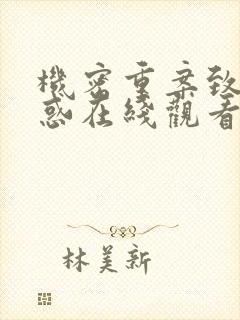 機密重案致
惑在綫觀看
林美新